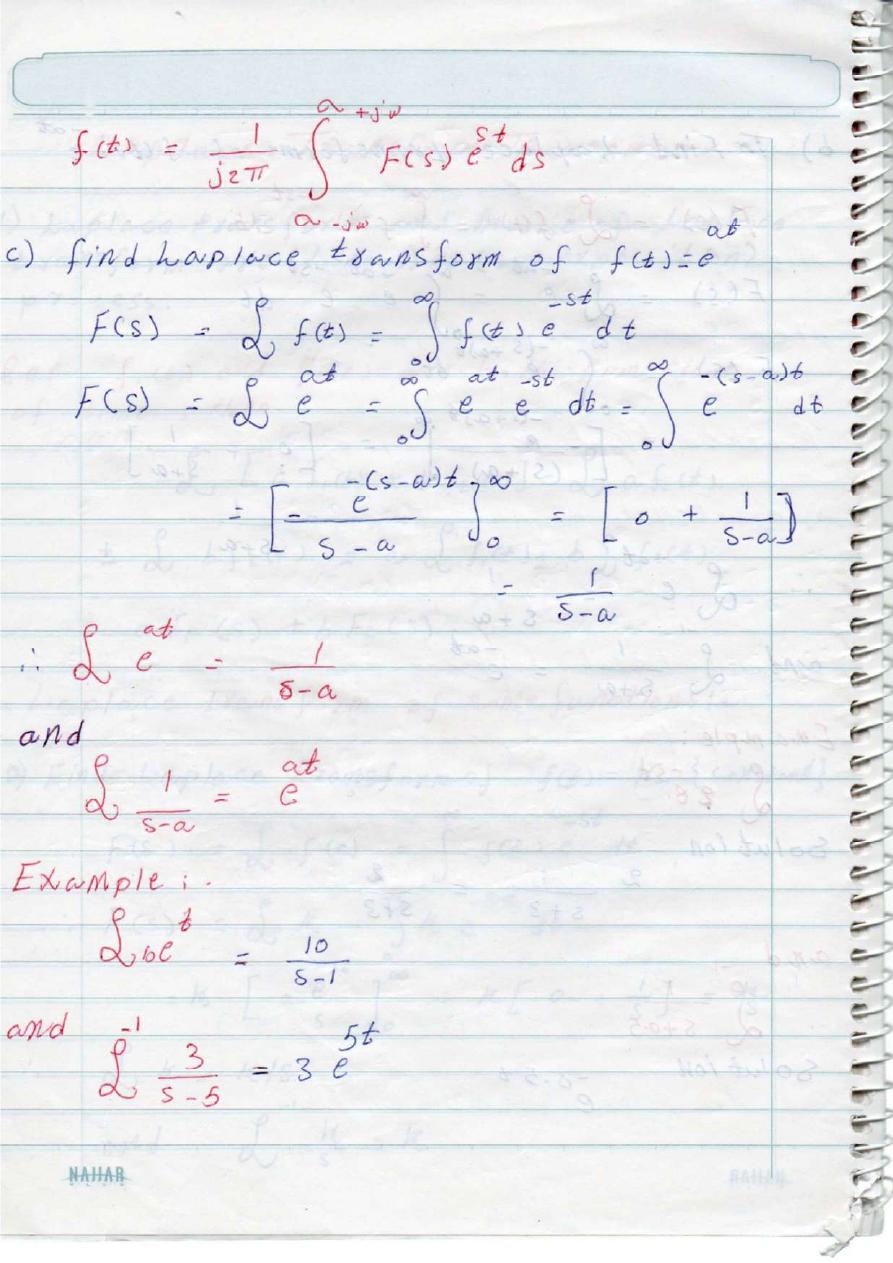 f(t) = 1/(j2π) ∫_{a-jw}^{a+jw} F(s) e^{st} ds
c) find Laplace transform of f(t)=e^{at}
F(s) = ℒ f(t) = ∫_0^∞ f(t) e^{-st} dt
F(s) = ℒ e^{at} = ∫_0^∞ e^{at} e^{-st} dt = ∫_0^∞ e^{-(s-a)t} dt
= [- e^{-(s-a)t}/(s-a)]_0^∞ = [0 + 1/(s-a)]
= 1/(s-a)
∴ ℒ e^{at} = 1/(s-a)
and
ℒ 1/(s-a) = e^{at}
Example:.
ℒ 10e^{t} = 10/(s-1)
and ℒ^{-1} 3/(s-5) = 3 e^{5t}
NAJJAR